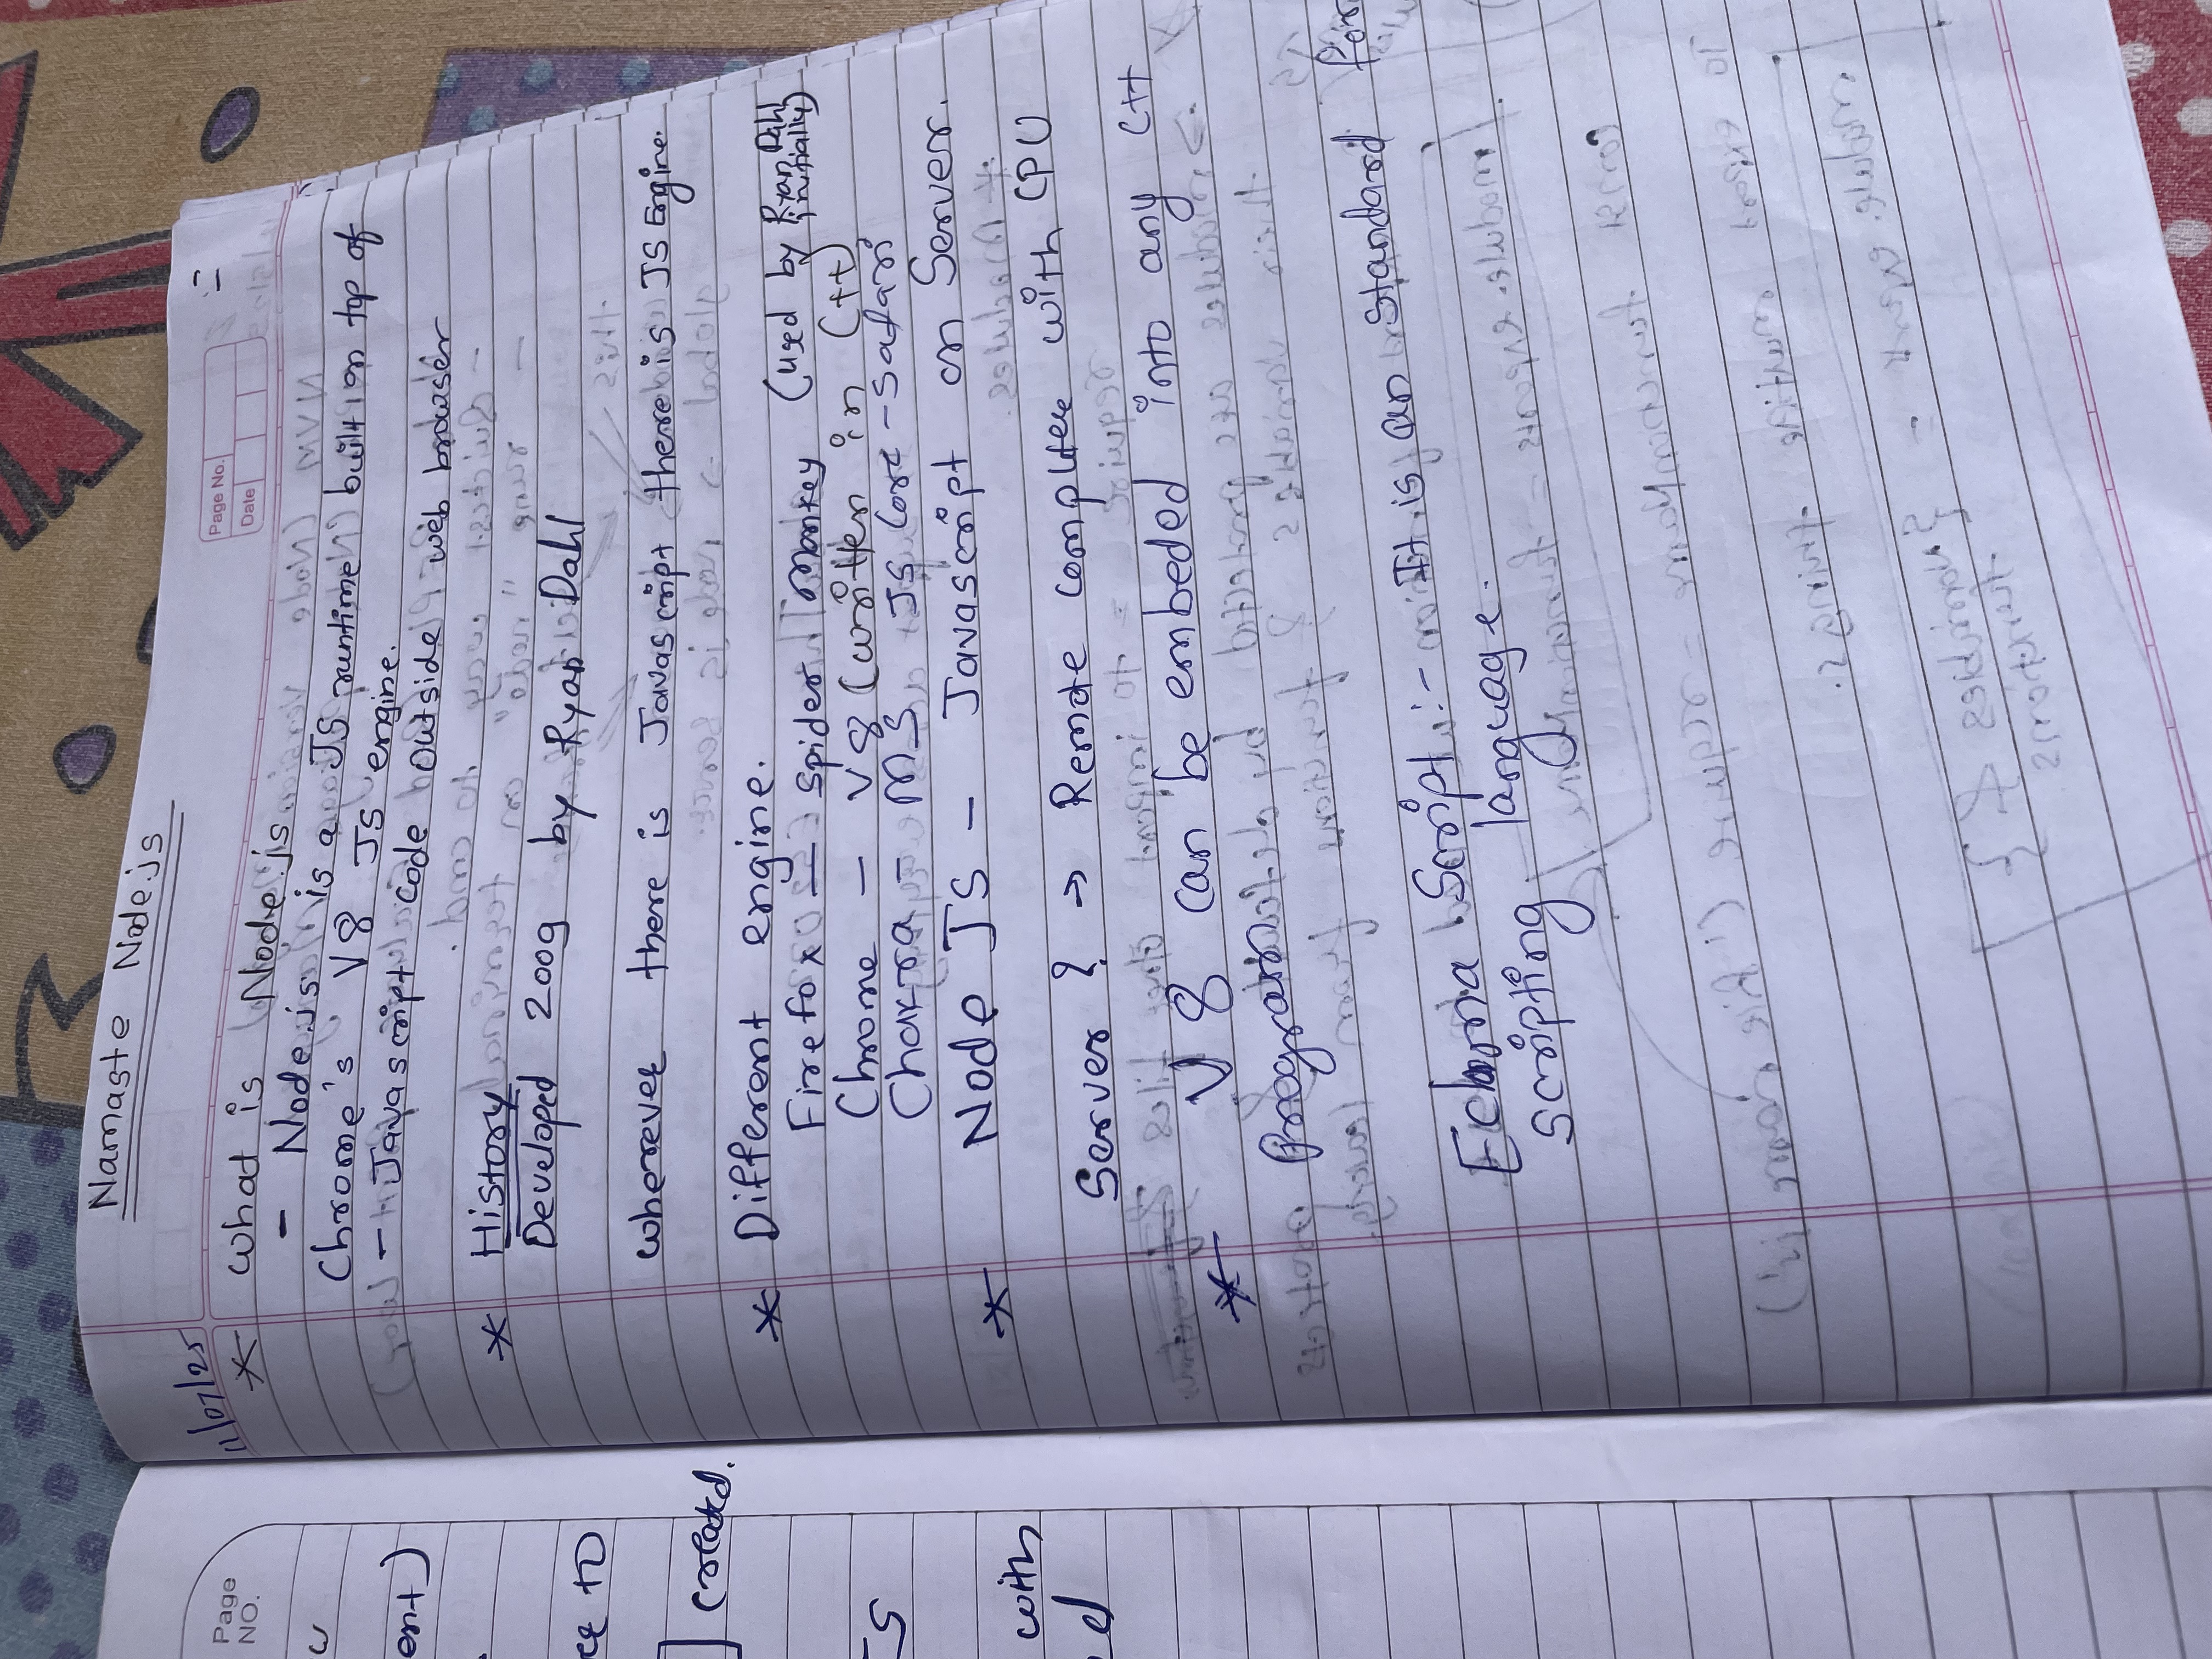 Namaste Node.js
11/07/25
Page No.
Date
* what is Node.js
- Node.js is a JS runtime built on top of
Chrome's V8 JS engine.
- Javascript code outside web browser
* History
Developed 2009 by Ryan Dahl
wherever there is Javascript there is JS Engine.
* Different engine.
Firefox — Spider Monkey (used by Ryan Dahl initially)
Chrome — V8 (written in C++)
Chakra - MS JS Core - Safari
* Node JS - Javascript on Server.
Server ? → Remote computer with CPU
* V8 can be embeded into any C++
Program
Ecma Script :- It is an standard for
scripting language.
Page
NO.
ent)
to
created.
with